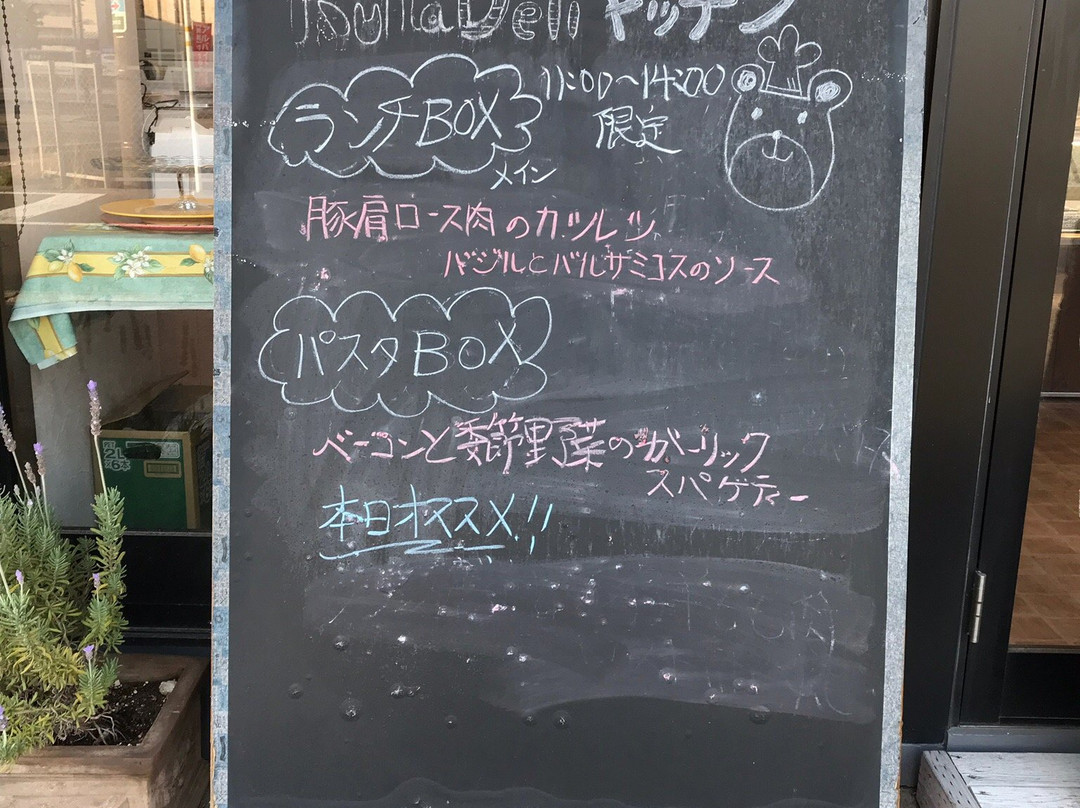 Deli キッチン
ランチBOX
11:00〜14:00
限定
メイン
豚肩ロース肉のカツレツ
バジルとバルサミコスのソース
パスタBOX
ベーコンと季節野菜のガーリック
スパゲティー
本日オススメ!!
2L
×6本